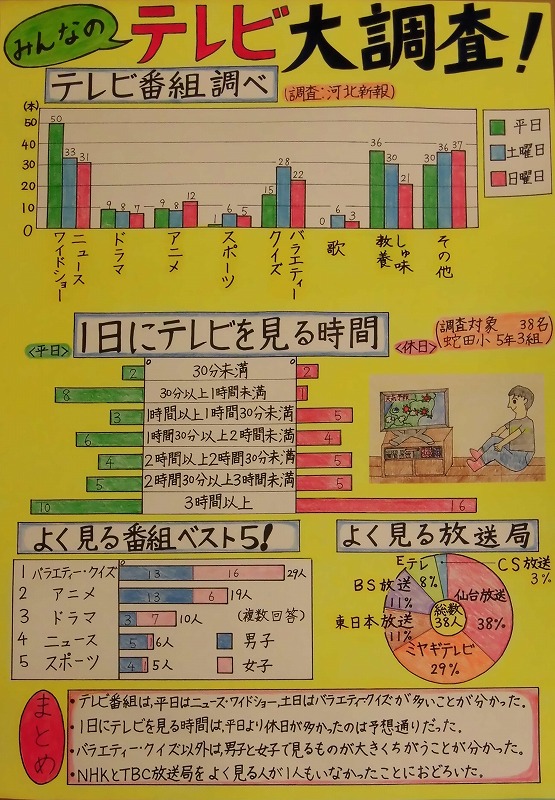 みんなの
テレビ大調査!
テレビ番組調べ
(調査:河北新報)
(本)
50
40
30
20
10
0
平日
土曜日
日曜日
50 33 31
9 8 7
9 8 12
1 6 5
15 28 22
0 6 3
36 30 21
30 36 37
ニュース
ワイドショー
ドラマ
アニメ
スポーツ
バラエティー
クイズ
歌
しゅ味
教養
その他
1日にテレビを見る時間
(調査対象 38名)
(蛇田小5年3組)
<平日>
<休日>
2 30分未満 2
8 30分以上1時間未満 1
3 1時間以上1時間30分未満 5
6 1時間30分以上2時間未満 4
4 2時間以上2時間30分未満 5
5 2時間30分以上3時間未満 5
10 3時間以上 16
よく見る番組ベスト5!
1 バラエティー・クイズ 13 16 29人
2 アニメ 13 6 19人
3 ドラマ 3 7 10人
(複数回答)
4 ニュース 5 1 6人
5 スポーツ 4 1 5人
男子
女子
よく見る放送局
総数
38人
仙台放送
38%
ミヤギテレビ
29%
東日本放送
11%
BS放送
11%
Eテレ
8%
CS放送
3%
まとめ
・テレビ番組は,平日はニュース・ワイドショー,土日はバラエティークイズが多いことが分かった。
・1日にテレビを見る時間は,平日より休日が多かったのは予想通りだった。
・バラエティー・クイズ以外は,男子と女子で見るものが大きくちがうことが分かった。
・NHKとTBC放送局をよく見る人が1人もいなかったことにおどろいた。